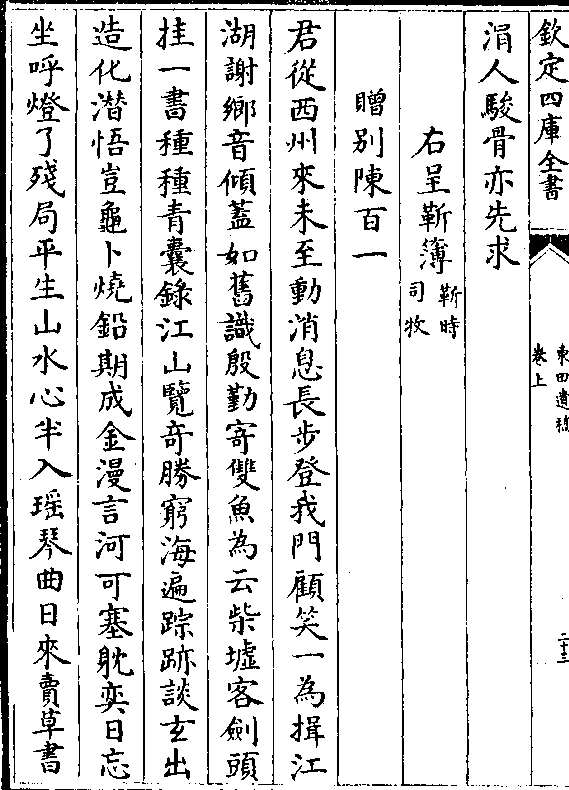 欽定四庫全書
東田遺稿
卷上
二十三
涓人駿骨亦先求
右呈靳簿靳時司牧
贈別陳百一
君從西州來未至動消息長步登我門顧笑一為揖江
湖謝鄉音傾蓋如舊識殷勤寄雙魚為云柴墟客劍頭
挂一書種種青囊錄江山覽奇勝窮海遍踪跡談玄出
造化潛悟豈龜卜燒鉛期成金漫言河可塞躭奕日忘
坐呼燈了殘局平生山水心半入瑶琴曲日來賣草書